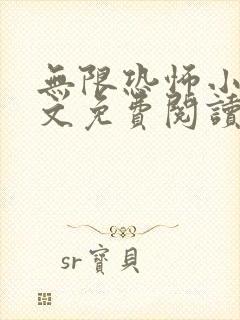 無限恐怖小
文免費閱讀
sr寶貝